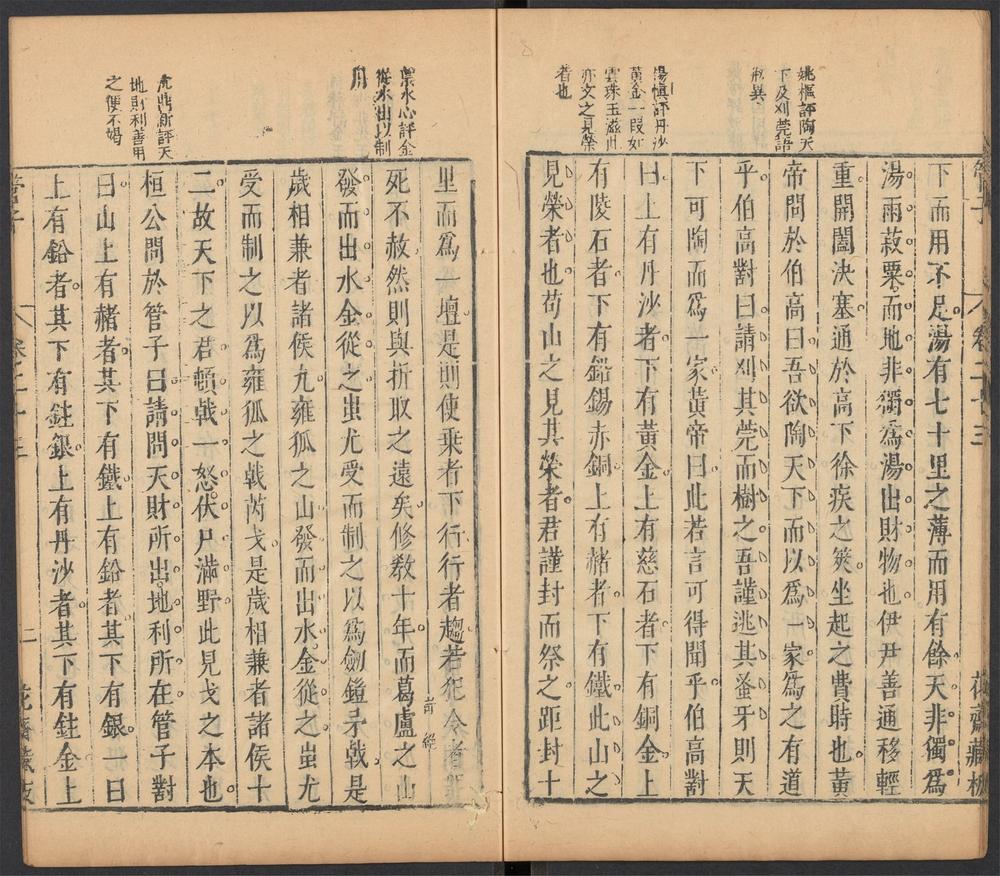 姚樞評陶天
下及刈莞語
湯慎評丹沙
黃金一段如
雲珠玉滋州
亦文之見榮
者也
下而用不足湯有七十里之薄而用有餘天非獨爲
湯雨菽粟而地非獨爲湯出財物也伊尹善通移輕
重開闔決塞通於高下徐疾之筴坐起之費時也黃
帝問於伯高曰吾欲陶天下而以爲一家爲之有道
乎伯高對曰請刈其莞而樹之吾謹逃其蚤牙則天
下可陶而爲一家黃帝曰此若言可得聞乎伯高對
曰上有丹沙者下有黃金上有慈石者下有銅金上
有陵石者下有鉛錫赤銅上有赭者下有鐵此山之
見榮者也苟山之見其榮者君謹封而祭之距封十
評金
從水出以制
新評天
地財利善用
之便不竭
里而爲一壇是則使乘者下行行者趨若犯令者罪
死不赦然則與折取之遠矣修教十年而葛盧之山
發而出水金從之蚩尤受而制之以爲劒鎧矛戟是
歲相兼者諸侯九雍狐之山發而出水金從之蚩尤
受而制之以爲雍狐之戟芮戈是歲相兼者諸侯十
二故天下之君頓戟一怒伏尸滿野此見戈之本也
桓公問於管子曰請問天財所出地利所在管子對
曰山上有赭者其下有鐵上有鉛者其下有銀一曰
上有鉛者其下有鉒銀上有丹沙者其下有鉒金上
管子
二